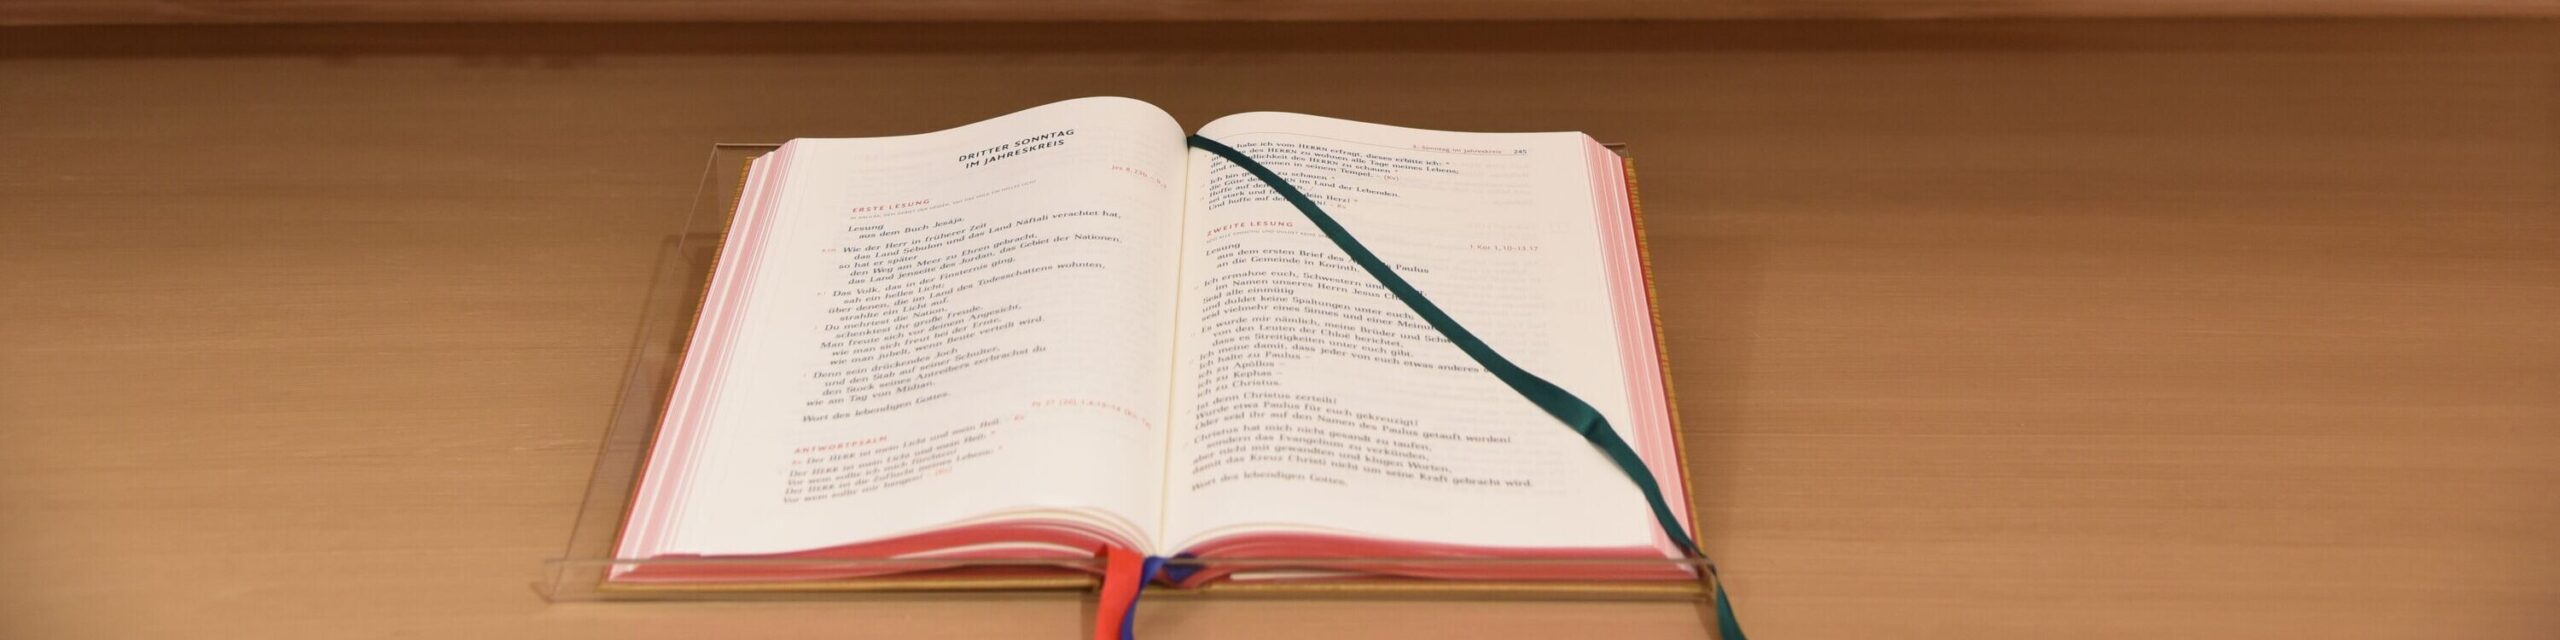 DRITTER SONNTAG
IM JAHRESKREIS
ERSTE LESUNG
Jes 8, 23b – 9, 3
Lesung
aus dem Buch Jesája.
Wie der Herr in früherer Zeit
das Land Sébulon und das Land Náftali verachtet hat,
so hat er später
den Weg am Meer zu Ehren gebracht,
das Land jenseits des Jordan, das Gebiet der Nationen.
Das Volk, das in der Finsternis ging,
sah ein helles Licht;
über denen, die im Land des Todesschattens wohnten,
strahlte ein Licht auf.
Du mehrtest die Nation,
schenktest ihr große Freude.
Man freute sich vor deinem Angesicht,
wie man sich freut bei der Ernte,
wie man jubelt, wenn Beute verteilt wird.
Denn sein drückendes Joch
und den Stab auf seiner Schulter,
den Stock seines Antreibers zerbrachst du
wie am Tag von Mídian.
Wort des lebendigen Gottes.
ANTWORTPSALM
Kv Der HERR ist mein Licht und mein Heil. – Kv
Der HERR ist mein Licht und mein Heil: *
Vor wem sollte ich mich fürchten?
Der HERR ist die Zuflucht meines Lebens: *
Vor wem sollte mir bangen? – (Kv)
3. Sonntag im Jahreskreis 245
habe ich vom HERRN erfragt, dieses erbitte ich: *
des HERRN zu wohnen alle Tage meines Lebens;
die des HERRN zu schauen *
und in seinem Tempel. – (Kv)
Ich bin zu schauen *
die Güte des im Land der Lebenden.
Hoffe auf den
sei stark und dein Herz! *
Und hoffe auf den – Kv
ZWEITE LESUNG
1 Kor 1, 10–13.17
Lesung
aus dem ersten Brief des Paulus
an die Gemeinde in Korinth.
Ich ermahne euch, Schwestern und
im Namen unseres Herrn Jesus
Seid alle einmütig
und duldet keine Spaltungen unter euch;
seid vielmehr eines Sinnes und einer
Es wurde mir nämlich, meine Brüder und
von den Leuten der Chloë berichtet,
dass es Streitigkeiten unter euch gibt.
Ich meine damit, dass jeder von euch etwas anderes
Ich halte zu Paulus –
ich zu Apóllos –
ich zu Kephas –
ich zu Christus.
Ist denn Christus zerteilt?
Wurde etwa Paulus für euch gekreuzigt?
Oder seid ihr auf den Namen des Paulus getauft worden?
Christus hat mich nicht gesandt zu taufen,
sondern das Evangelium zu verkünden,
aber nicht mit gewandten und klugen Worten,
damit das Kreuz Christi nicht um seine Kraft gebracht wird.
Wort des lebendigen Gottes.